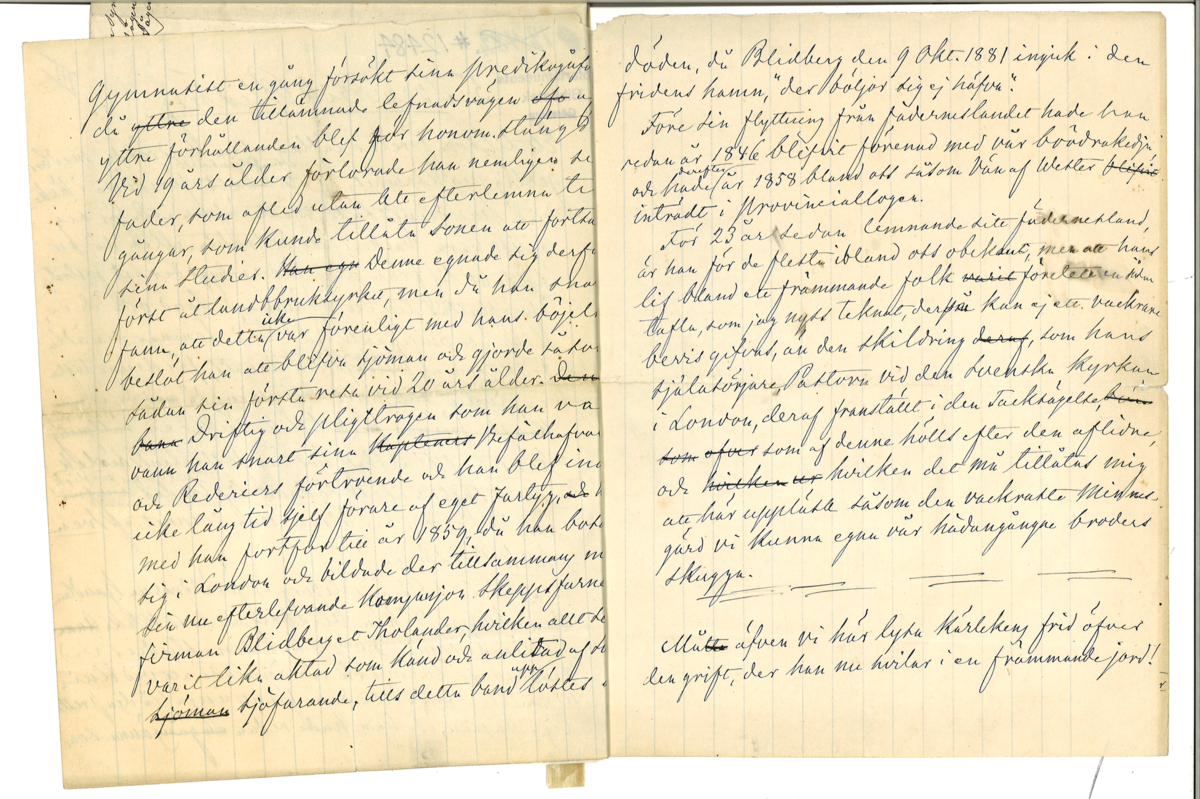 # 12484.
Gymnasist en gång försökt sina predikogåfo
då yttre den tillämnade lefnadsvägen af
yttre förhållanden blef för honom stängd
Vid 19 års ålder förlorade han nemligen se
fader, som afled utan att efterlemna ti
gångar, som kunde tillåta sonen att fortsä
sina studier. Han egn Denne egnade sig derfö
först åt landtbruksyrket, men då han sna
fann, att detta icke var förenligt med hans böjel
beslöt han att blifva sjöman och gjorde såso
sådan sin första resa vid 20 års ålder. Den
hann Driftig och pligttrogen som han va
vann han snart sina Kapteners Befälhafva
och Rederiers förtroende och han blef ino
icke lång tid sjelf förare af eget fartyg, och h
med han fortfor till år 1859, då han bosa
sig i London och bildade der tillsammans m
sin nu efterlefvande Kompanjon skeppsfurne
firman Blidberg et Tholander, hvilken allt se
varit lika aktad som känd och anlitad af s
sjöman sjöfarande, tills detta band upplöstes
döden, då Blidberg den 9 Okt. 1881 ingick i den
fridens hamn, "der böljor sig ej häfva".
Före sin flyttning från fäderneslandet hade han
redan år 1846 blifvit förenad med vår brödrakedja
och hade derefter år 1858 bland oss såsom Vän af Wester blifvit
inträdt i Provinciallogen.
För 23 år sedan lemnande sitt fädernesland,
är han för de flesta ibland oss obekant, men att hans
lif bland ett främmande folk varit företett en sådan
tafla, som jag nyss teknat, derpå kan ej ett vackrare
bevis gifvas, än den skildring deraf, som hans
själasörjare, Pastorn vid den svenska kyrkan
i London, deraf framstält i den Tacksägelse, hans
som öfver som af denne hölls efter den aflidne,
och hvilken ur hvilken det må tillåtas mig
att här uppläsa såsom den vackraste Minnes-
gärd vi kunna egna vår hädangångne broders
skugga.
Måtte äfven vi här lysa Kärlekens frid öfver
den grift, der han nu hvilar i en främmande jord!